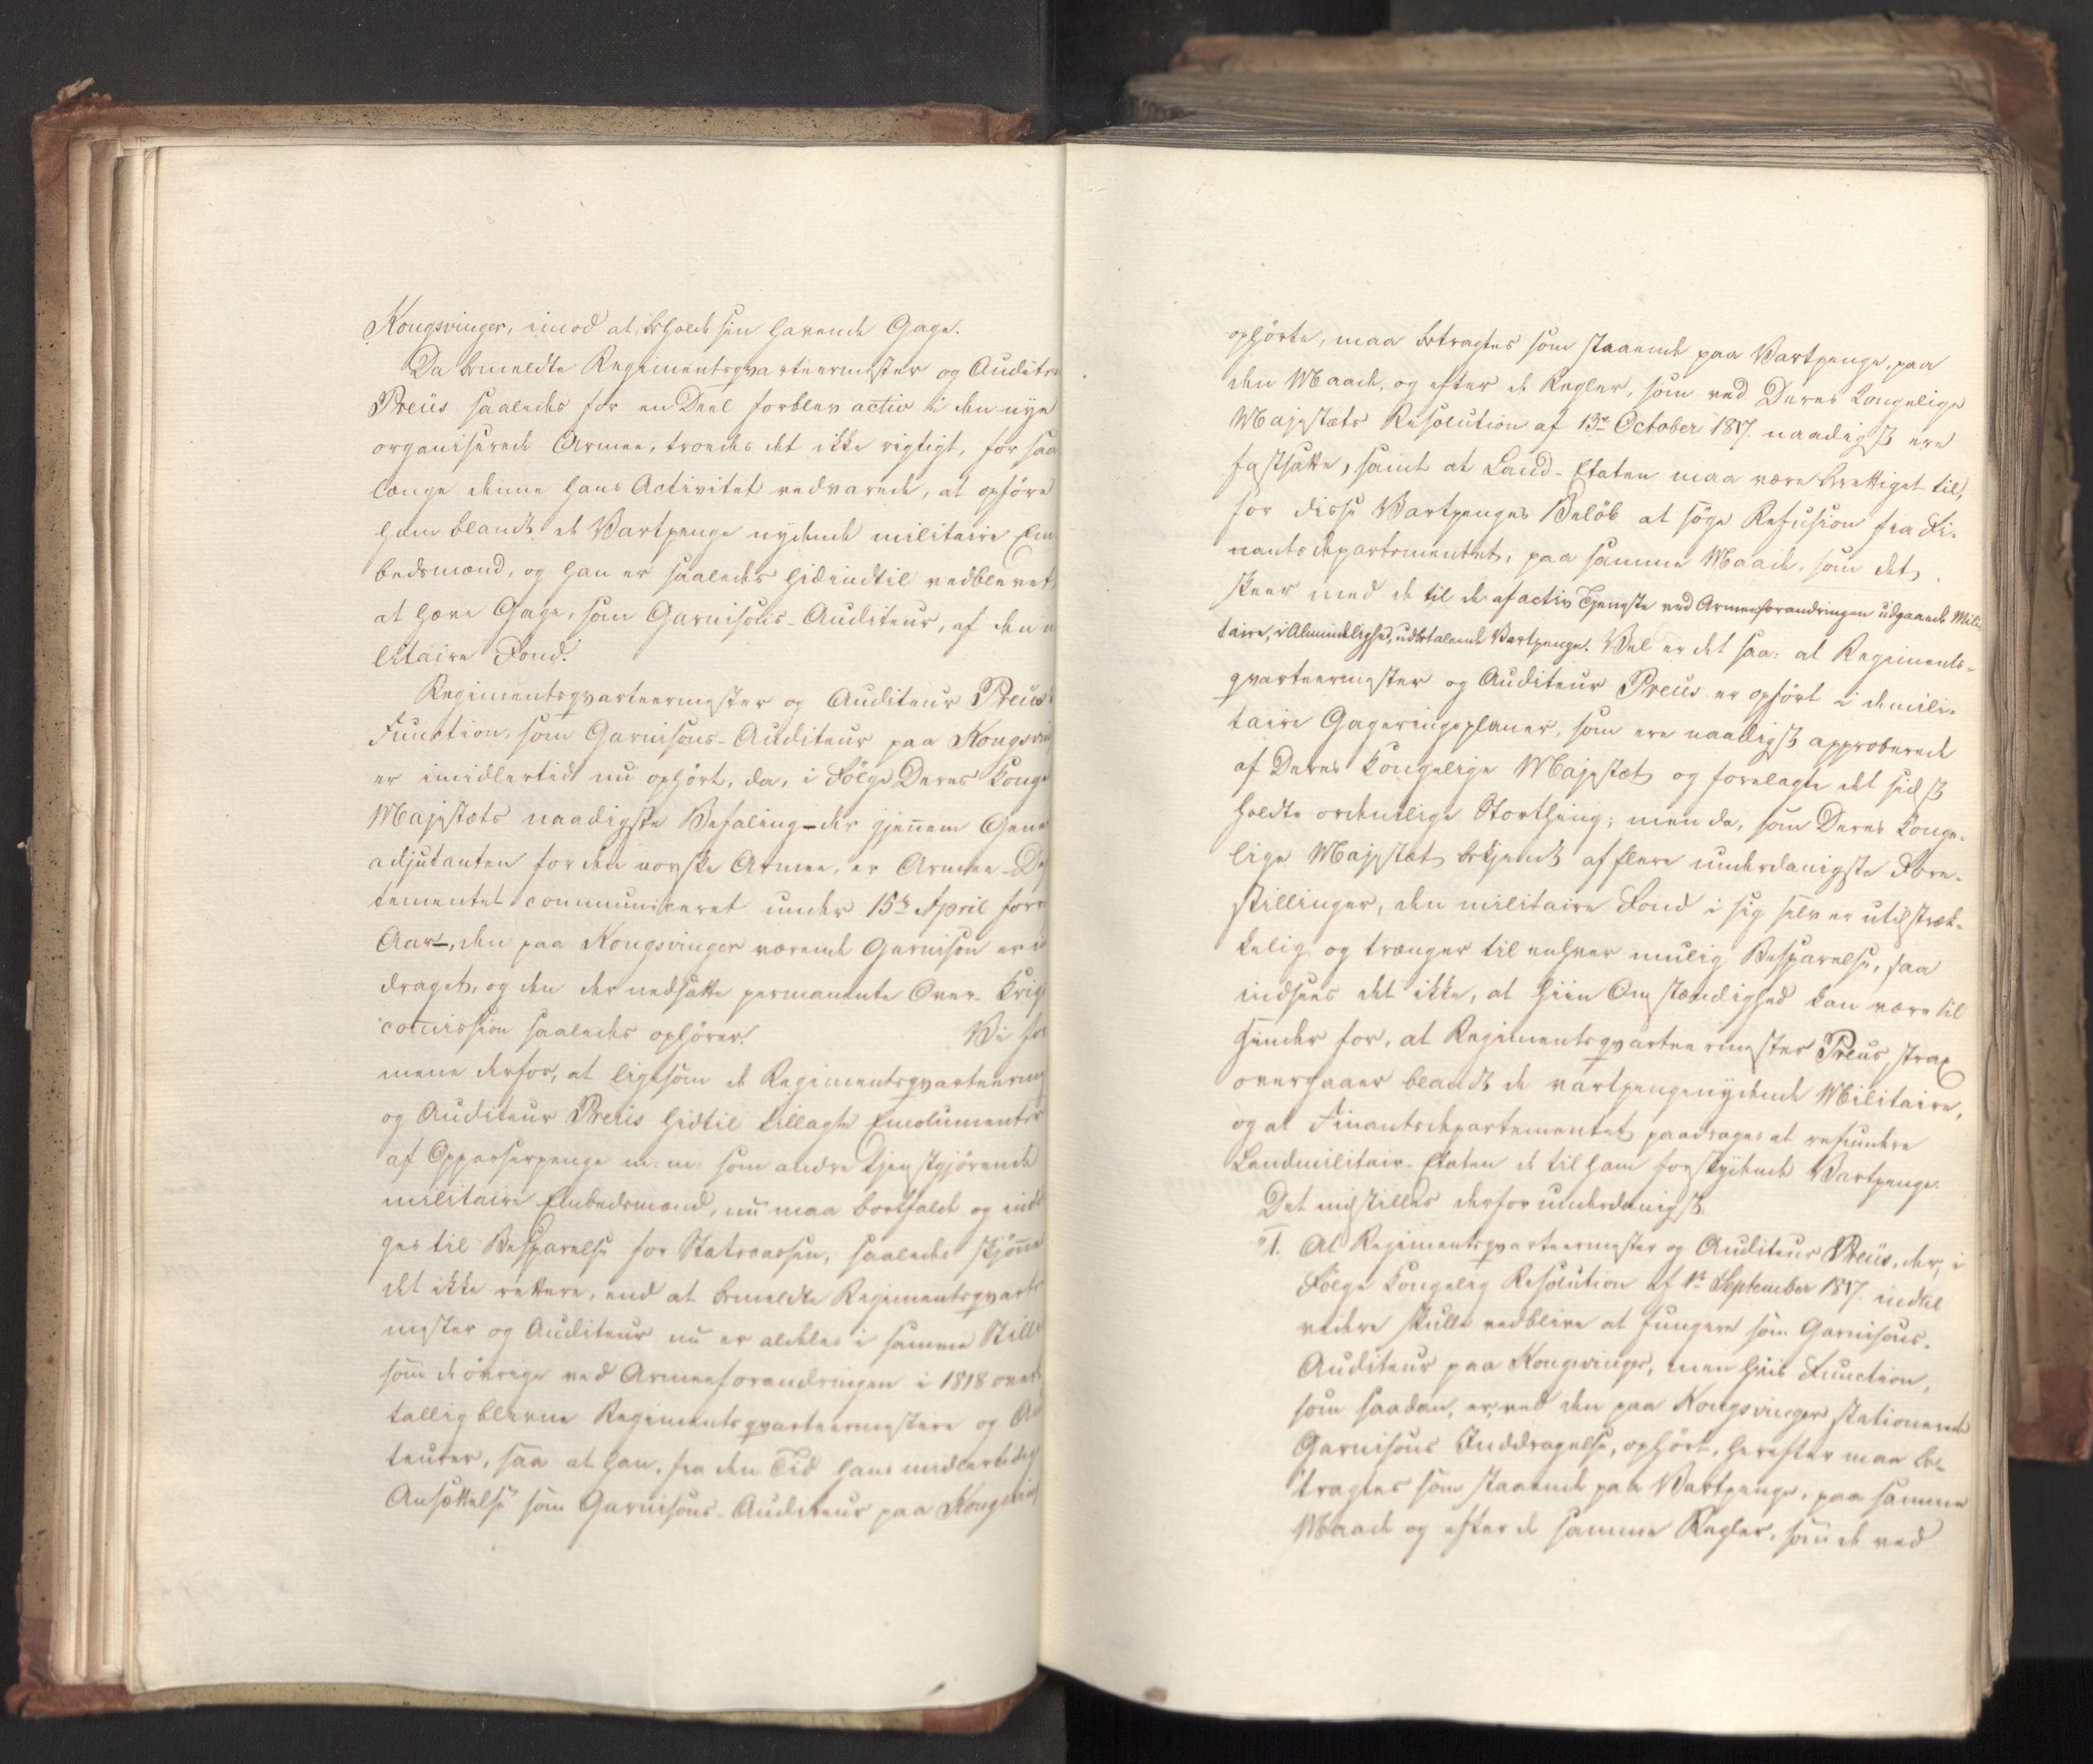 Kongsvinger, imod at beholde sin havende Gage.
Da bemeldte Regimentsqvarteermester og Auditeu
Preüs saaledes for en Deel forblev activ i den nye
organiserede Armee, troedes det ikke rigtigt, for saa
længe denne hans Activitet vedvarede, at opføre
ham blandt de Vartpenge nydende militaire Em
bedsmænd, og han er saaledes hidindtil vedblevet
at hæve Gage, som Garnisons-Auditeur, af den m
litaire Fond.
Regimentsqvarteermester og Auditeur Preus's
Function, som Garnisons-Auditeur paa Kongsvin
er imidlertid nu ophørt, da, i Følge Deres Konge
Majestæts naadigste Befaling - der gjennem Gene
adjutanten for den norske Armee, er Armee-De
tementet communiceret under 15de April forr
Aar -, den paa Kongsvinger værende Garnison er i
draget, og den der nedsatte permanente Over-Krigs
comission saaledes ophører. Vi for
mene derfor, at ligesom de Regimentsqvarteerm
og Auditeur Preüs hidtil tillagte Emolumenter
af Oppasserpenge m: m: som andre tjenstgjørende
militaire Embedsmænd, nu maa bortfalde og ind
ges til Besparelse for Statscassen, saaledes skjønne
det ikke rettere, end at bemeldte Regimentsqvarte
mester og Auditeur nu er aldeles i samme Still
som de øvrige ved Armeeforandringen i 1818 over
tallig blevne Regimentsqvarteermestere og Au
teurer, saa at han, fra den Tid hans midlertidig
Ansættelse som Garnisons-Auditeur paa Kongsvin
ophørte, maa betragtes som staaende paa Vartpenge, paa
den Maade, og efter de Regler, som ved Deres Kongelige
Majestæts Resolution af 13de October 1817 naadigst ere
fastsatte, samt at Land-Etaten maa være berettiget til,
for disse Vartpenges Beløb at søge Refusion fra Fi-
nantsdepartementet, paa samme Maade, som det
skeer med de til de af activ Tjeneste ved Armeeforandringen udgaaede Mili-
taire, i Almindelighed, udbetalende Vartpenge. Vel er det saa: at Regiments-
qvarteermester og Auditeur Preus er opført i de mili-
taire Gageringsplaner, som ere naadigst approberede
af Deres Kongelige Majestæt og forelagte det sidst
holdte ordentlige Storthing; men da, som Deres Konge-
lige Majestæt bekjendt af flere underdanigste Fore-
stillinger, den militaire Fond i sig selv er utilstræk-
kelig og trænger til enhver mulig Besparelse, saa
indsees det ikke, at hiin Omstændighed kan være til
Hinder for, at Regimentsqvarteermester Preus strax
overgaaer blandt de vartpengenydende Militaire,
og at Finantsdepartementet paadrages at refundere
Landmilitair-Etaten de til ham forskydende Vartpenge.
Det indstilles derfor underdanigst:
"1. At Regimentsqvarteermester og Auditeur Preüs, der, i
Følge Kongelig Resolution af 1ste September 1817 indtil
videre skulle vedblive at fungere som Garnisons-
Auditeur paa Kongsvinger, men hvis Function,
som saadan, er, ved den paa Kongsvinger stationerede
Garnisons Inddragelse, ophørt, herefter maa be-
tragtes som staaende paa Vartpenge, paa samme
Maade og efter de samme Regler, som de ved